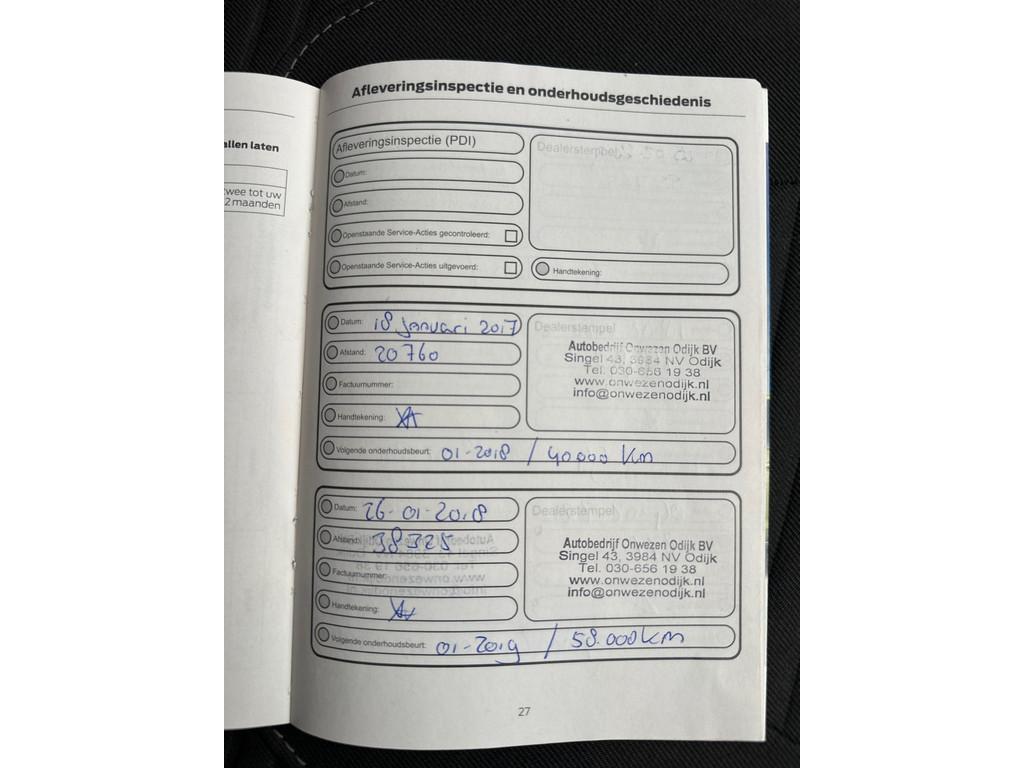 allen laten
twee tot uw
2 maanden
Afleveringsinspectie en onderhoudsgeschiedenis
Afleveringsinspectie (PDI)
Datum:
Afstand:
Openstaande Service-Acties gecontroleerd:
Openstaande Service-Acties uitgevoerd:
Dealerstempel
Handtekening:
Datum: 18 januari 2017
Afstand: 20760
Factuurnummer:
Handtekening:
Volgende onderhoudsbeurt: 01-2018 / 40000 km
Dealerstempel
Autobedrijf Onwezen Odijk BV
Singel 43, 3984 NV Odijk
Tel. 030-656 19 38
www.onwezenodijk.nl
info@onwezenodijk.nl
Datum: 26-01-2018
Afstand: 38325
Factuurnummer:
Handtekening:
Volgende onderhoudsbeurt: 01-2019 / 58.000km
Dealerstempel
Autobedrijf Onwezen Odijk BV
Singel 43, 3984 NV Odijk
Tel. 030-656 19 38
www.onwezenodijk.nl
info@onwezenodijk.nl
27